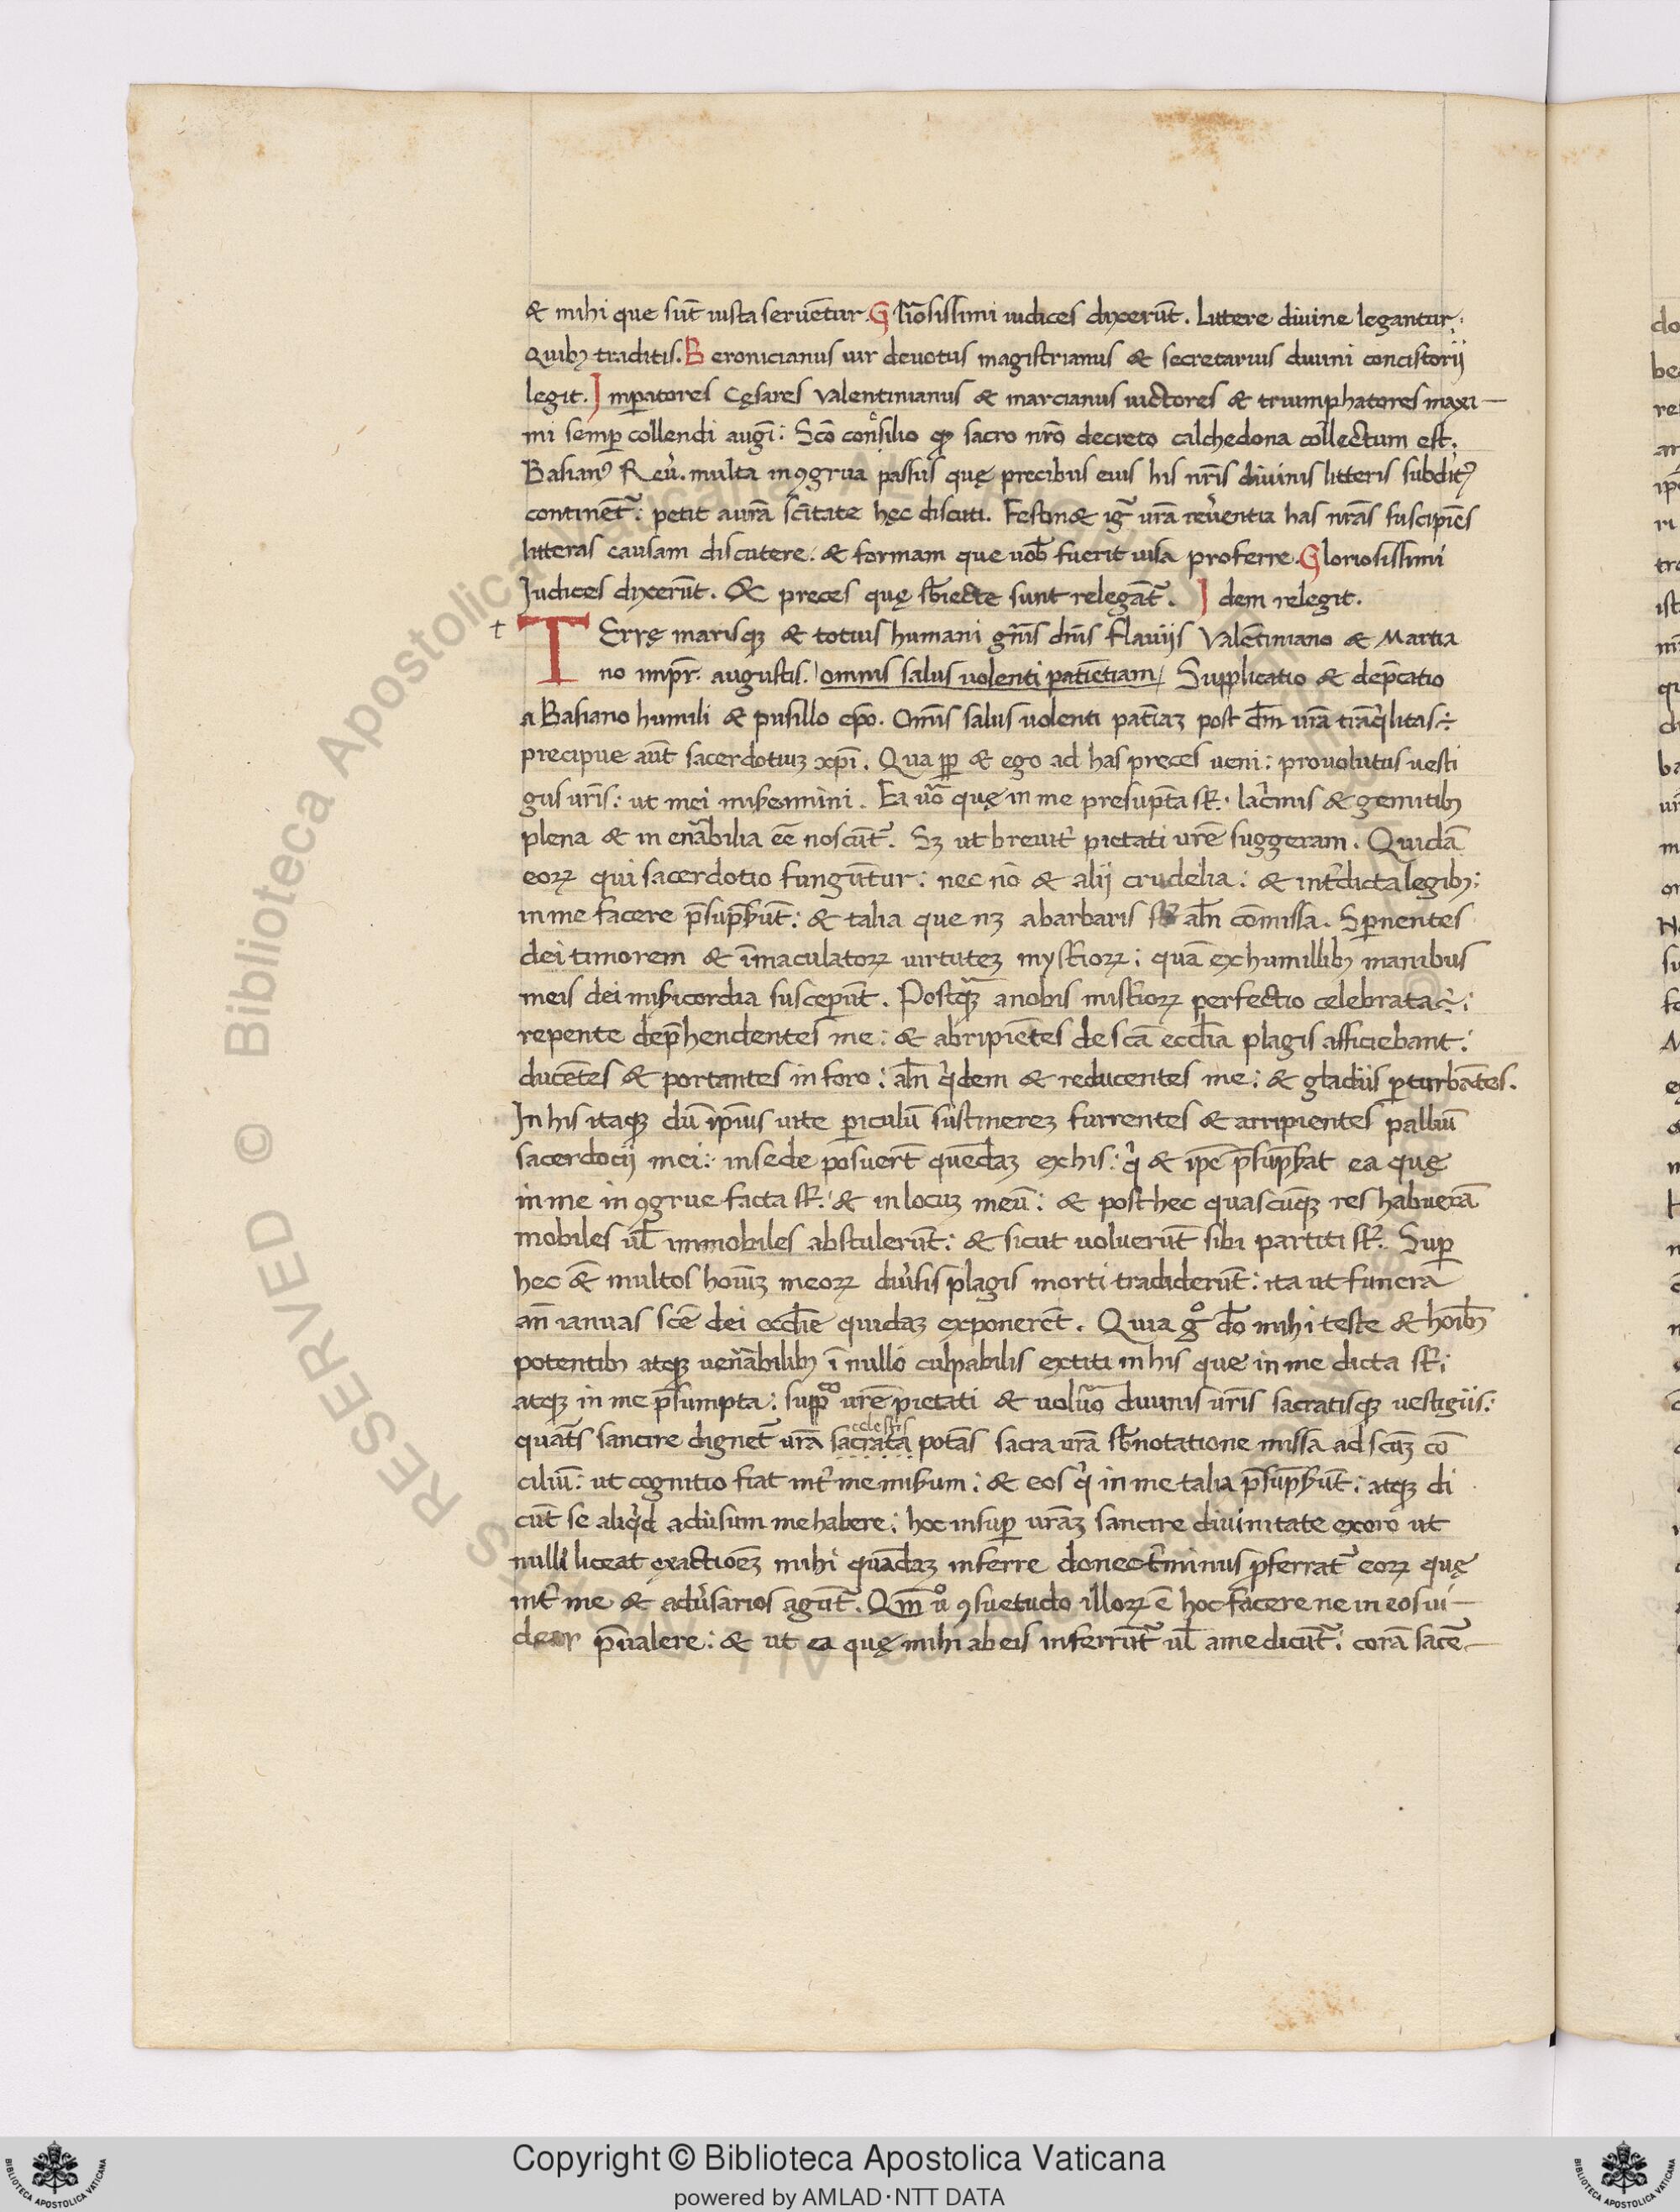 & mihi que sūt iusta seruētur. Gl̃iosissimi iudices dixerūt. Littere diuine legantur:
Quib; traditis. Beronicianus uir deuotus magistrianus & secretarius diuini concistorij
legit. Imꝑatores Cęsares Valentinianus & marcianus uictores & triumphatores maxi—
mi semꝑ collendi augī: Scō consilio qđ sacro nr̄o decreto calchedona collectum est.
Basianꝰ Reu̓. multa inꝯgrua passus quę precibus eius his nr̄is diuinis litteris subditꝰ
continet᷑: petit a ur̄a sc̄itate hęc discuti. Festin& ig᷑ ur̄a reu̓entia has nr̄as suscipiēs
litteras causam discutere: & formam que uob̄ fuerit uisa proferre. Gloriosissimi
Iudices dixerūt. & preces quę sb̄iecte sunt relegāt᷑. Idem relegit.
† TErrę marisqꝫ & totius humani gn̄is dn̄is Flauijs Valentiniano & Martia
no impr̄. augustis. omnis salus uolenti patiētiam / Supplicatio & dep̄catio
a Basiano humili & pusillo ep̄o. Omīs salus uolenti patīaꝫ post dm̄ ur̄a trāq̓litas:
precipue aūt sacerdotiuꝫ xp̄i. Qua ꝓp̄ & ego ad has preces ueni: prouolutus uesti
gijs ur̄is: ut mei misereamini. Ea uō quę in me presūpta st̄. lac̓mis & gemitib;
plena & in enãbilia eē noscūt᷑. Sꝫ ut breuit̓ pietati ur̄e suggeram. Quidā
eoꝝ qui sacerdotio fungūtur: nec nō & alij crudelia: & int̓dicta legib;:
in me facere p̄sūps̄ūt: & talia que nꝫ a barbaris st̄ al̄n cōmissa. Sꝑnentes
dei timorem & īmaculatoꝝ uirtuteꝫ mysťioꝝ: quā ex humillib; manibus
meis dei mis̄icordia susceperūt. Postq̃ꝫ a nobis misťioꝝ perfectio celebrata ÷:
repente dep̄hendentes me: & abripiētes de scā ecc̄lia plagis afficiebant:
ducētes & portantes in foro: al̄n q̓dem & reducentes me: & gladiis ꝑturbātes.
In his itaqꝫ dū ip̄ius uite ꝑiculū sustinereꝫ furrentes & arripientes palliū
sacerdocij mei: in sede posuerūt quendaꝫ ex his: q̓ & ip̄e p̄sūps̄at ea quę
in me in ꝯgrue facta st̄: & in locuꝫ meū: & post hec quascūqꝫ res habuerā
mobiles ul̄ immobiles abstulerūt: & sicut uoluerūt sibi partiti st̄. Suꝑ
hec & multos hoīuꝫ meoꝝ diu̓sis plagis morti tradiderūt: ita ut funera
an̄ ianuas scē dei ecc̄lie quidaꝫ exponerēt. Quia gͦ dō mihi teste & hoīb;
potentib; atqꝫ uen̄abilib; ī nullo culpabilis extiti in his que in me dicta st̄:
atqꝫ in me p̄sumpta: supp̄ ur̄e pietati & uoluō diuinis ur̄is sacratisqꝫ uestigiis:
celestis
quāt̄s sancire dignet᷑ ur̄a sacrata potās sacra ur̄a sb̄notatione missa ad scūꝫ cō
ciliū: ut cognitio fiat int̓ me mis̄um: & eos q̓ in me talia p̄sūps̄ūt: atqꝫ di
cūt se aliq̓d adu̓sum me habere: hoc insuꝑ ur̄aꝫ sancire diuinitate exoro ut
nulli liceat exactioēꝫ mihi quādaꝫ inferre donec t̓minus ꝓferrat᷑ eoꝝ quę
int̓ me & adu̓sarios agūt᷑. Qm̄ uͦ ꝯsuetudo illoꝝ ē hoc facere ne in eos ui—
dear p̄ualere: & ut ea quę mihi ab eis inferrūt᷑ ul̄ a me dicūt᷑: corā sacē—
© Biblioteca Apostolica Vaticana
Copyright © Biblioteca Apostolica Vaticana
powered by AMLAD·NTT DATA